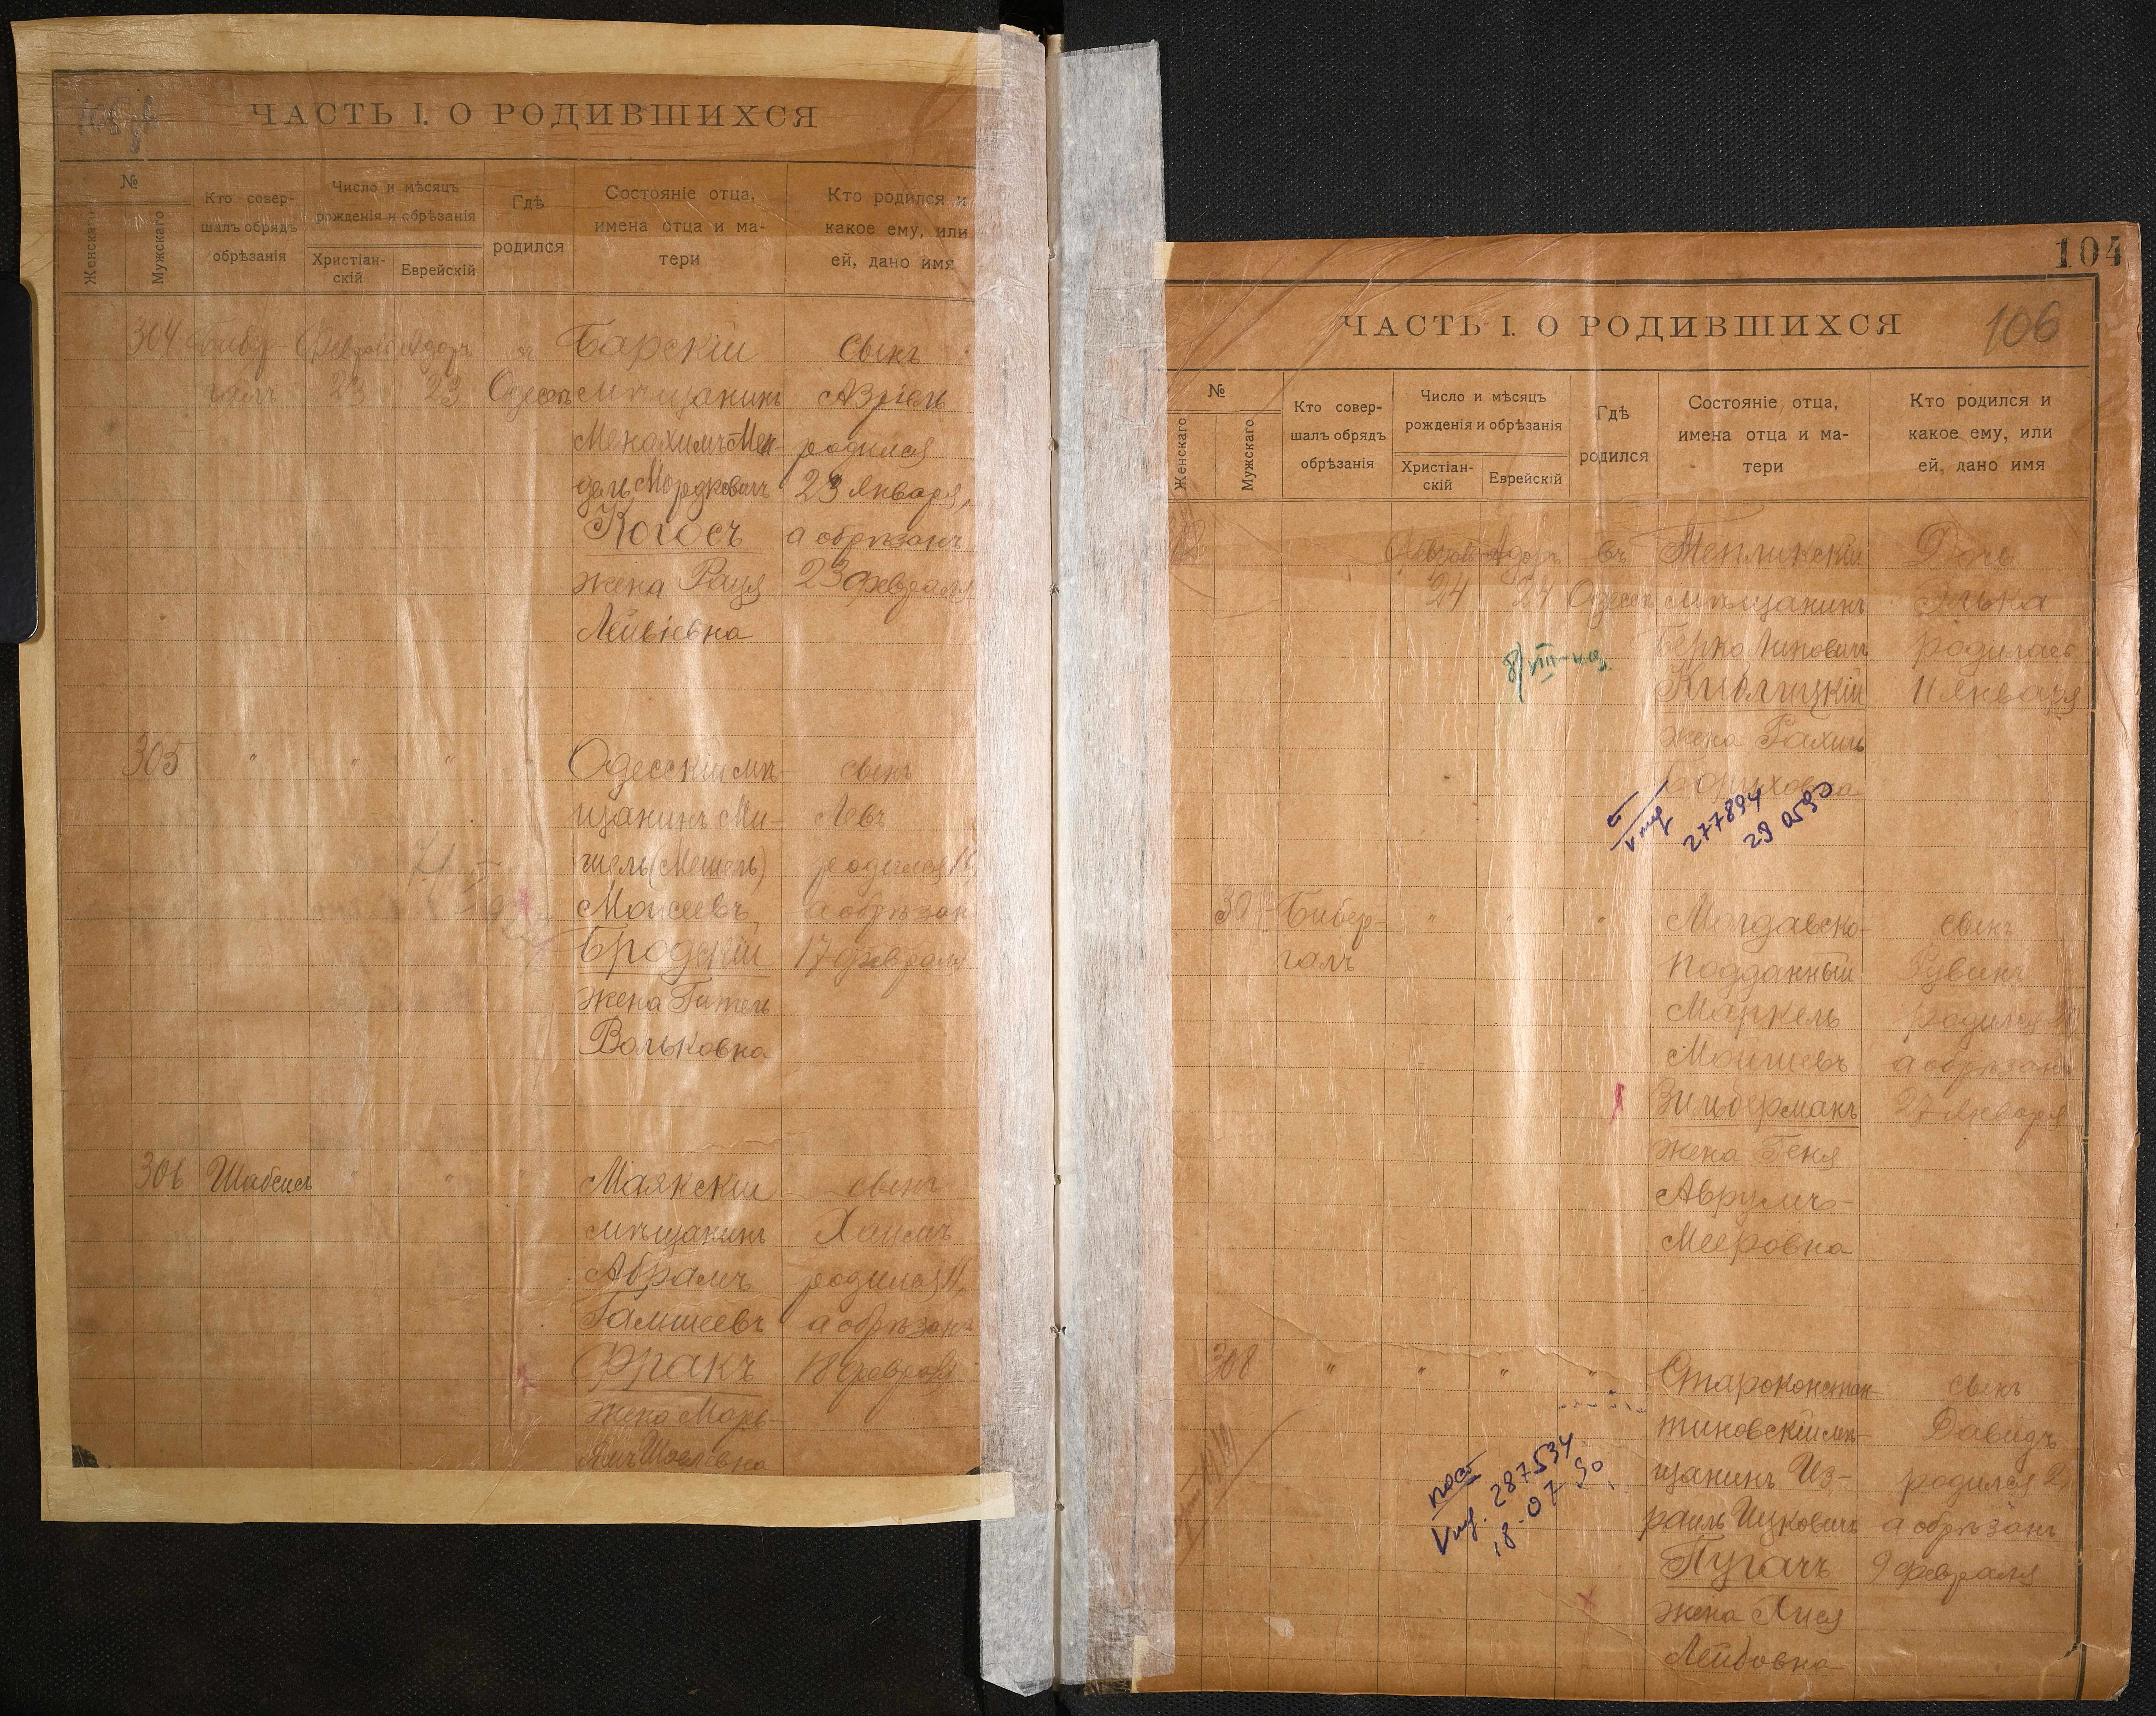 ЧАСТЬ I. О РОДИВШИХСЯ
№
Женскаго
Мужскаго
Кто совер-
шалъ обрядъ
обрѣзанія
Число и мѣсяцъ
рожденія и обрѣзанія
Христіан-
скій
Еврейскій
Гдѣ
родился
Состояніе отца,
имена отца и ма-
тери
Кто родился и
какое ему, или
ей, дано имя
304
Февраль
23
Адоръ
23
Одессѣ
Барскій
мѣщанинъ
Менахимъ Мен-
дель Мордковичъ
Когосъ
жена Рауя
Лейвіевна
сынъ
Азріель
родился
23 Января,
а обрѣзанъ
23 февраля
305
"
"
"
"
Одесскій мѣ-
щанинъ Ми-
хель (Мешель)
Моисеевъ
Бродскій
жена Гитель
Вольковна
сынъ
Левъ
родился 11,
а обрѣзан
17 февраля
306
Шабсисъ
"
"
"
Маякскій
мѣщанинъ
Абрамъ
Франкъ
жена Марь-
сынъ
Хаимъ
родился 11,
а обрѣзанъ
18 февраля
104
106
ЧАСТЬ I. О РОДИВШИХСЯ
№
Женскаго
Мужскаго
Кто совер-
шалъ обрядъ
обрѣзанія
Число и мѣсяцъ
рожденія и обрѣзанія
Христіан-
скій
Еврейскій
Гдѣ
родился
Состояніе отца,
имена отца и ма-
тери
Кто родился и
какое ему, или
ей, дано имя
Февраль
24
Адоръ
24
въ
Одессѣ
Теплинскій
мѣщанинъ
Берко
жена Рахиль
Боруховна
Дочь
Элька
родилась
11 Января
277894
290590
Бибер-
галъ
"
"
"
Молдавско-
подданный
Маркель
Мошеевъ
Зильберманъ
жена Геня
Аврумъ-
Мееровна
сынъ
Рувинъ
родился 20
а обрѣзанъ
27 Января
308
"
"
"
"
Староконстан-
тиновскій мѣ-
щанинъ Из-
раиль Ицковичъ
Пугачъ
жена Хися
Лейбовна
сынъ
Давидъ
родился 2,
а обрѣзанъ
9 февраля
287534
18-07-90